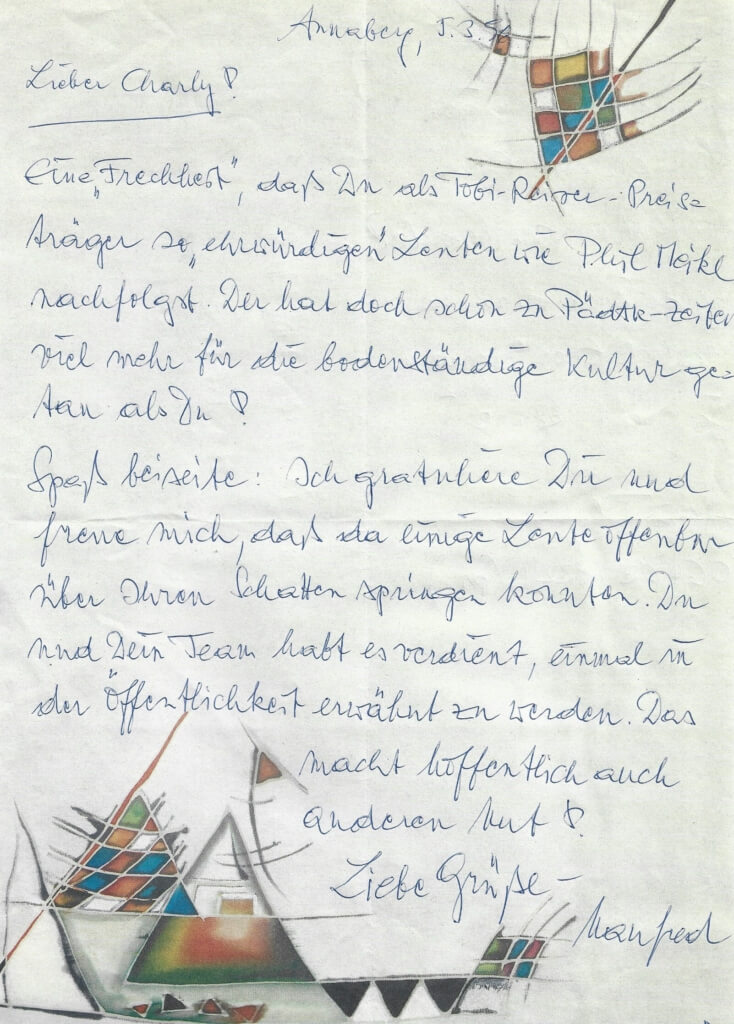 Annaberg, 5.3.96
Lieber Charly!
Eine „Frechheit“, daß Du als Tobi-Reiser-Preis=
träger so „ehrwürdigen“ Leuten wie
nachfolgst. Der hat doch schon zu Pädak-Zeiten
viel mehr für die bodenständige Kultur ge=
tan als Du!
Spaß beiseite: Ich gratuliere Dir und
freue mich, daß da einige Leute offenbar
über Ihren Schatten springen konnten. Du
und Dein Team habt es verdient, einmal in
der Öffentlichkeit erwähnt zu werden. Das
macht hoffentlich auch
anderen Mut!
Liebe Grüße –
Manfred